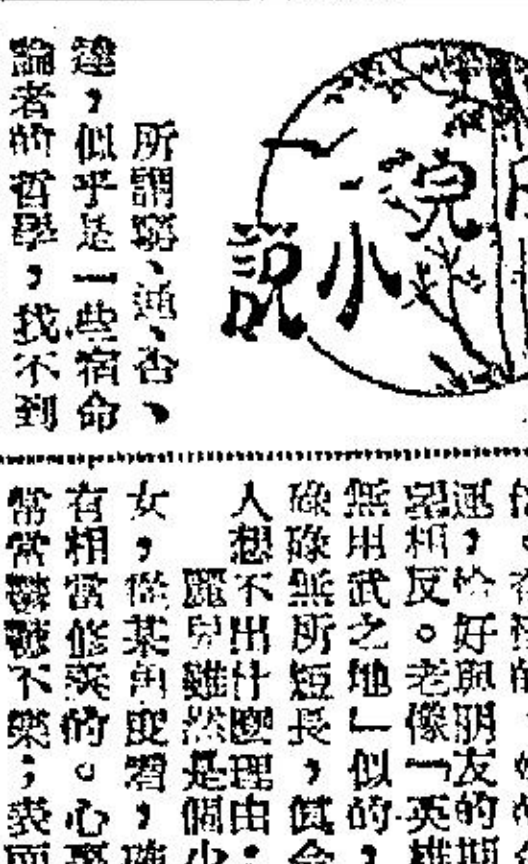 院
小說
所謂窮、通、否、
達，似乎是一些宿命
論者的哲學，找不到
運，恰好與朋友的期
望相反。老像「英雄
無用武之地」似的，
碌碌無所短長，
人想不出什麼理由；
麗兒雖然是個少
女，從某角度看，確
有相當修養的。心裏
常常鬱鬱不樂；表面